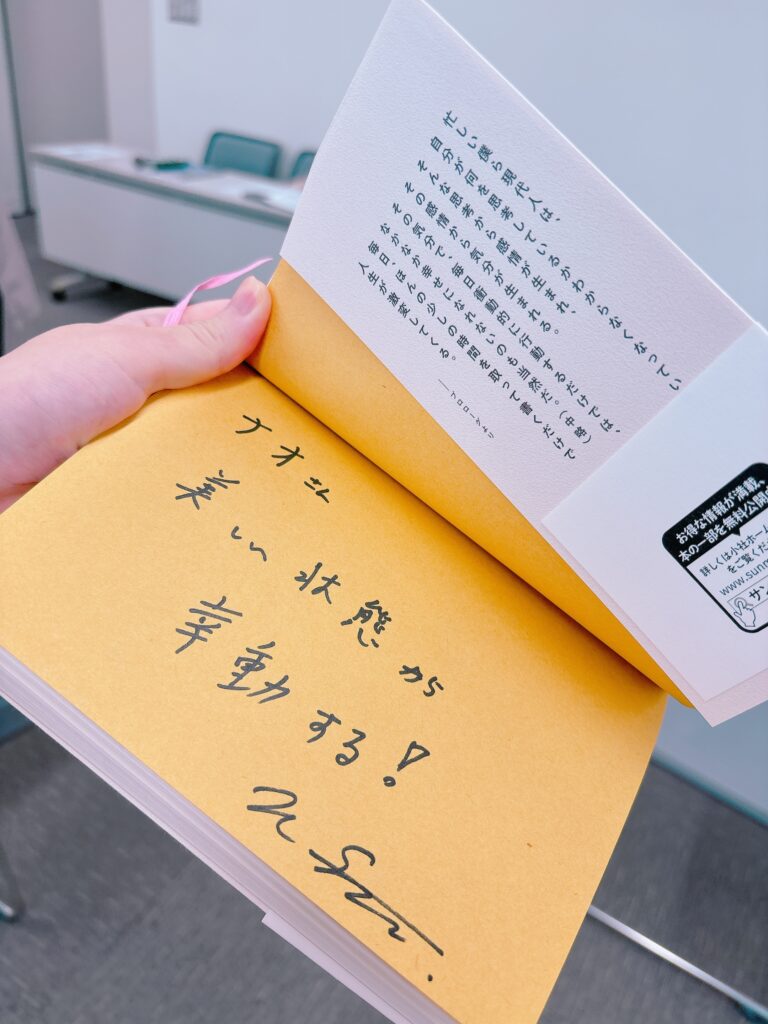 忙しい僕ら現代人は、
自分が何を思考しているかわからなくなってい
そんな思考から感情が生まれ、
その感情から気分が生まれる。
その気分で、毎日衝動的に行動するだけでは、
なかなか幸せになれないのも当然だ。(中略)
毎日、ほんの少しの時間を取って書くだけで
人生が激変してくる。
――プロローグより
お得な情報が満載、
本の一部を無料公開
詳しくは小社ホーム
をご覧くだ
www.sunm
サン
ナオさん
美しい状態から
幸動する!